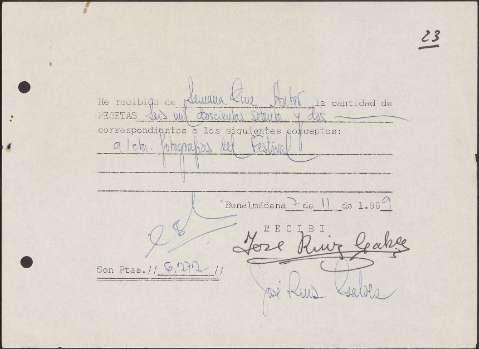 23
He recibido de Semana Cine Autor la cantidad de
PESETAS Seis mil doscientas setenta y dos
correspondientes a los siguientes conceptos:
a/cta. fotografias del Festival
Benalmádena 7 de 11 de 1.969
RECIBI
José Ruiz Galvez
Son Ptas.// 6,272 //
José Ruiz Galvez